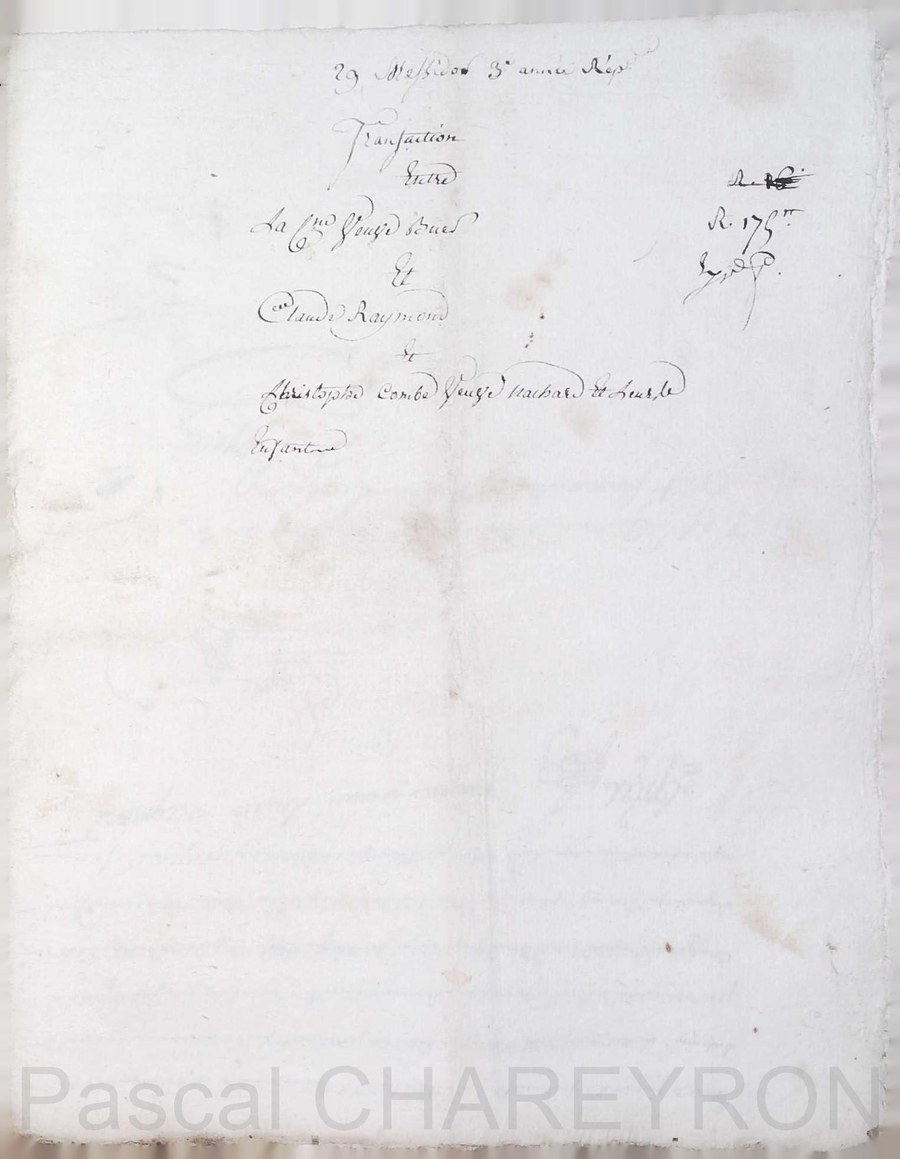 29 Messidor 3e année Rép
Transaction
Entre
R.
La Cne Veuve Buer
R. 175tt.
Et
Claude Raymond
Et
Christophe Combe Veuve Nachard Et Leurs
Enfants
Pascal CHAREYRON